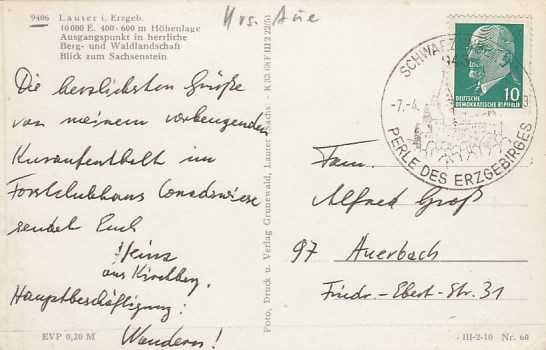 Krs. Aue
9406 Lauter i. Erzgeb.
10 000 E. 400 - 600 m Höhenlage
Ausgangspunkt in herrliche
Berg- und Waldlandschaft
Blick zum Sachsenstein
Die herzlichsten Grüße
von meinem vorbeugenden
Kuraufenthalt im
Forstclubhaus Conradswiese
sendet Euch
Heinz
aus Kirchberg.
Hauptbeschäftigung:
Wandern!
EVP 0,20 M
Foto, Druck u. Verlag Grunewald, Lauter (Sachs) · K 33/08 F III 2 22/61
SCHWARZ
-7.-4.
PERLE DES ERZGEBIRGES
DEUTSCHE
DEMOKRATISCHE REPUBLIK
10
Fam.
Alfred Groß
97 Auerbach
Friedr.-Ebert-Str. 31
III-2-10 Nr. 60